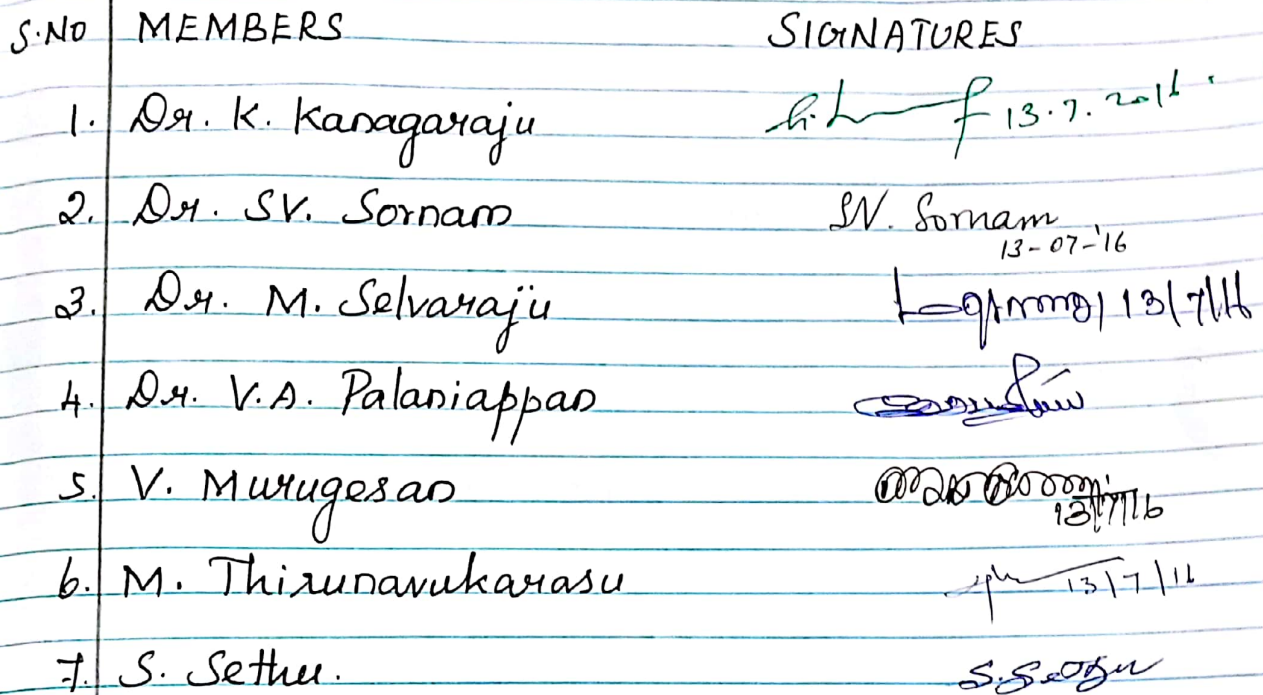 S.NO MEMBERS SIGNATURES
1. Dr. K. Kanagaraju 13.7.2016
2. Dr. SV. Sornam SV. Sornam
13-07-'16
3. Dr. M. Selvaraju 13/7/16
4. Dr. V.A. Palaniappan
5. V. Murugesan
13/7/16
6. M. Thirunavukarasu 13/7/16
7. S. Sethu.